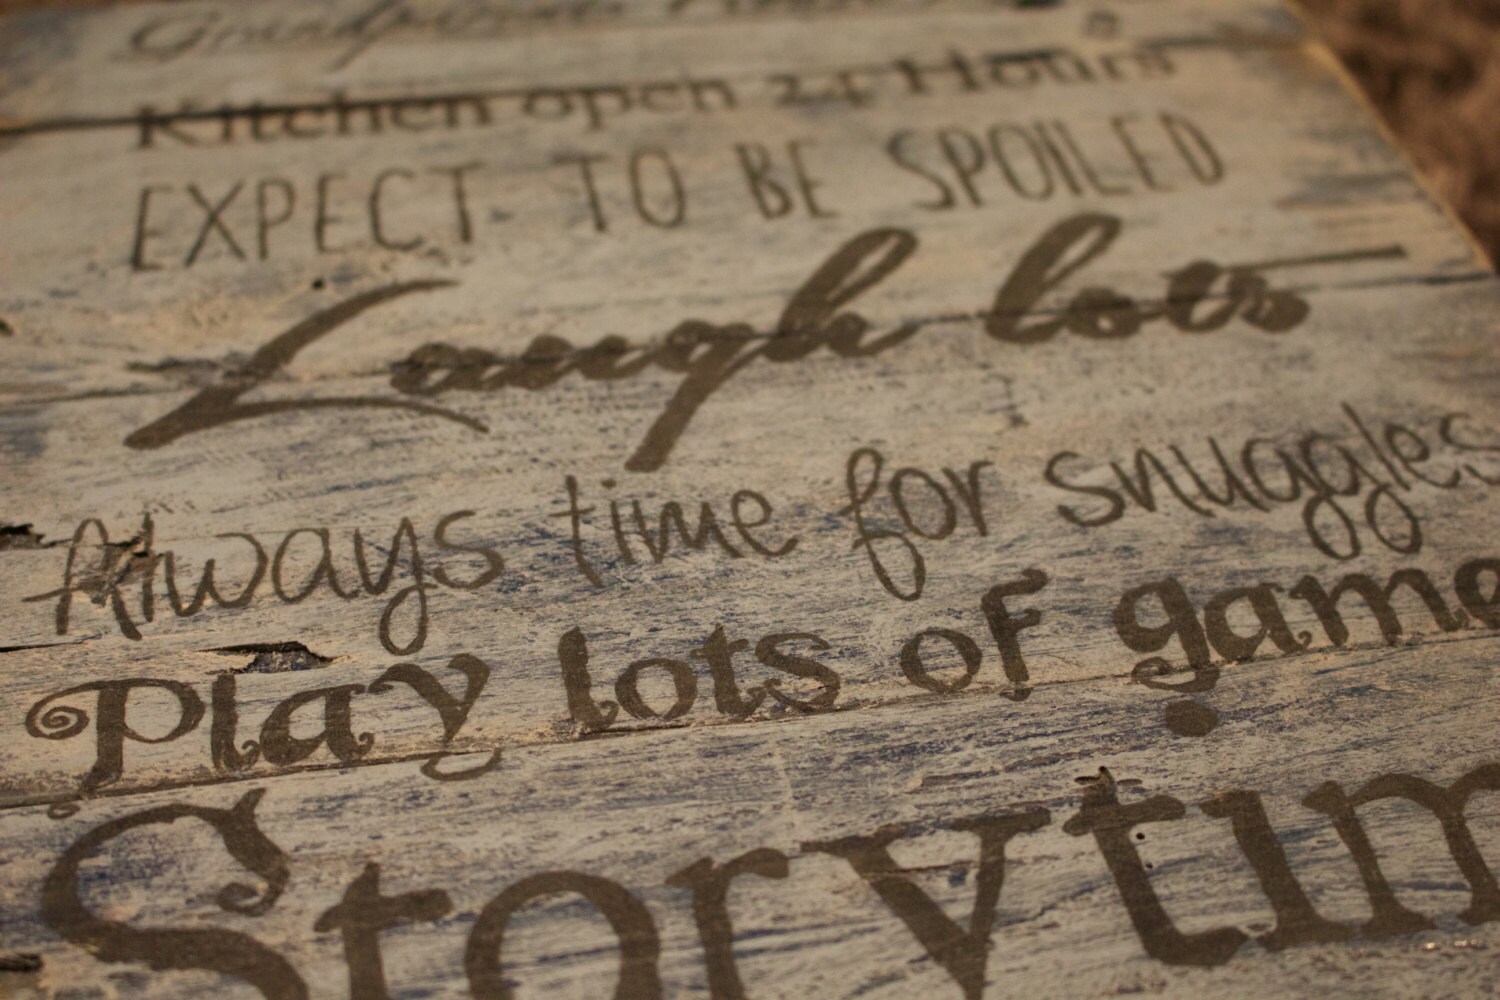 Kitchen open 24 Hours
EXPECT TO BE SPOILED
Laugh lots
Always time for snuggles
Play lots of game
Storytim